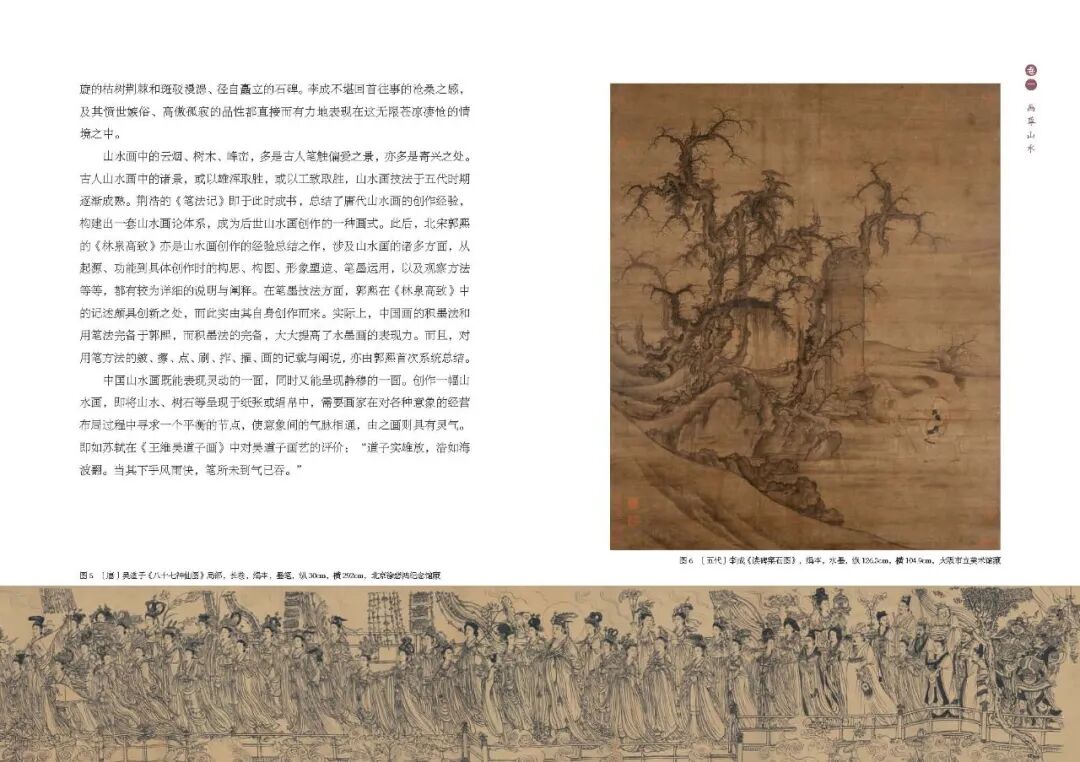 旋的枯树荆棘和斑驳漫漶、径自矗立的石碑。李成不堪回首往事的沧桑之感，
及其愤世嫉俗、高傲孤寂的品性都直接而有力地表现在这无限苍凉凄怆的情
境之中。
山水画中的云烟、树木、峰峦，多是古人笔触偏爱之景，亦多是寄兴之处。
古人山水画中的诸景，或以雄浑取胜，或以工致取胜，山水画技法于五代时期
逐渐成熟。荆浩的《笔法记》即于此时成书，总结了唐代山水画的创作经验，
构建出一套山水画论体系，成为后世山水画创作的一种圆式。此后，北宋郭熙
的《林泉高致》亦是山水画创作的经验总结之作，涉及山水画的诸多方面，从
起源、功能到具体创作时的构思、构图、形象塑造、笔墨运用，以及观察方法
等等，都有较为详细的说明与阐释。在笔墨技法方面，郭熙在《林泉高致》中
的记述颇具创新之处，而此实由其自身创作而来。实际上，中国画的积墨法和
用笔法完备于郭熙，而积墨法的完备，大大提高了水墨画的表现力。而且，对
用笔方法的皴、擦、点、刷、捽、擢、画的记载与阐说，亦由郭熙首次系统总结。
中国山水画既能表现灵动的一面，同时又能呈现静穆的一面。创作一幅山
水画，即将山水、树石等呈现于纸张或绢帛中，需要画家在对各种意象的经营
布局过程中寻求一个平衡的节点，使意象间的气脉相通，由之画则具有灵气。
即如苏轼在《王维吴道子画》中对吴道子画艺的评价：“道子实雄放，浩如海
波翻。当其下手风雨快，笔所未到气已吞。”
图5 ［唐］吴道子《八十七神仙图》局部，长卷，绢本，墨笔，纵30cm，横292cm，北京徐悲鸿纪念馆藏
卷一
画萃山水
图6 ［五代］李成《读碑窠石图》，绢本，水墨，纵126.3cm，横104.9cm，大阪市立美术馆藏